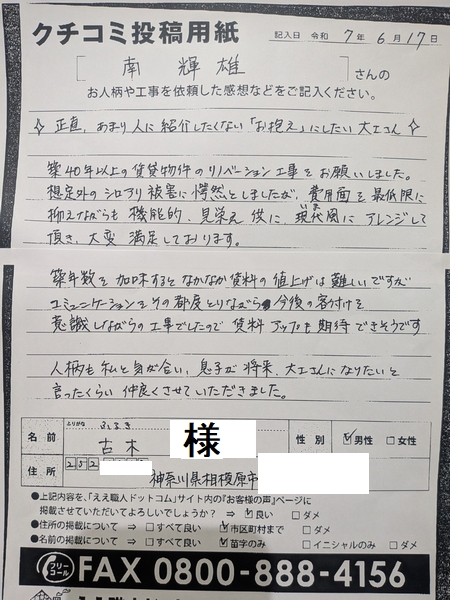 クチコミ投稿用紙
記入日 令和 7年 6月 17日
[ 南 輝雄 ] さんの
お人柄や工事を依頼した感想などをご記入ください。
☆ 正直、あまり人に紹介したくない「お抱え」にしたい大工さん ☆
築40年以上の賃貸物件のリノベーション工事をお願いしました。
想定外のシロアリ被害に愕然としましたが、費用面を最低限に
抑えながらも機能的、見栄え供に、現代風にアレンジして
いま
頂き、大変 満足しております。
築年数を加味するとなかなか賃料の値上げは難しいですが
コミュニケーションをその都度とりながら今後の客付けを
意識しながらの工事でしたので 賃料アップも期待できそうです
人柄も私と気が合い、息子が将来、大工さんになりたいと
言ったくらい 仲良くさせていただきました。
ふりがな ふるき
名前 古木 様 性別 ☑男性 □女性
住所 252
神奈川県相模原市
●上記内容を、「ええ職人ドットコム」サイト内の『お客様の声』ページに
掲載させていただいてよろしいでしょうか? ⇒ ☑良い □ダメ
●住所の掲載について ⇒ □すべて良い ☑市区町村まで □ダメ
●名前の掲載について ⇒ □すべて良い ☑苗字のみ □イニシャルのみ □ダメ
フリーコール FAX 0800-888-4156